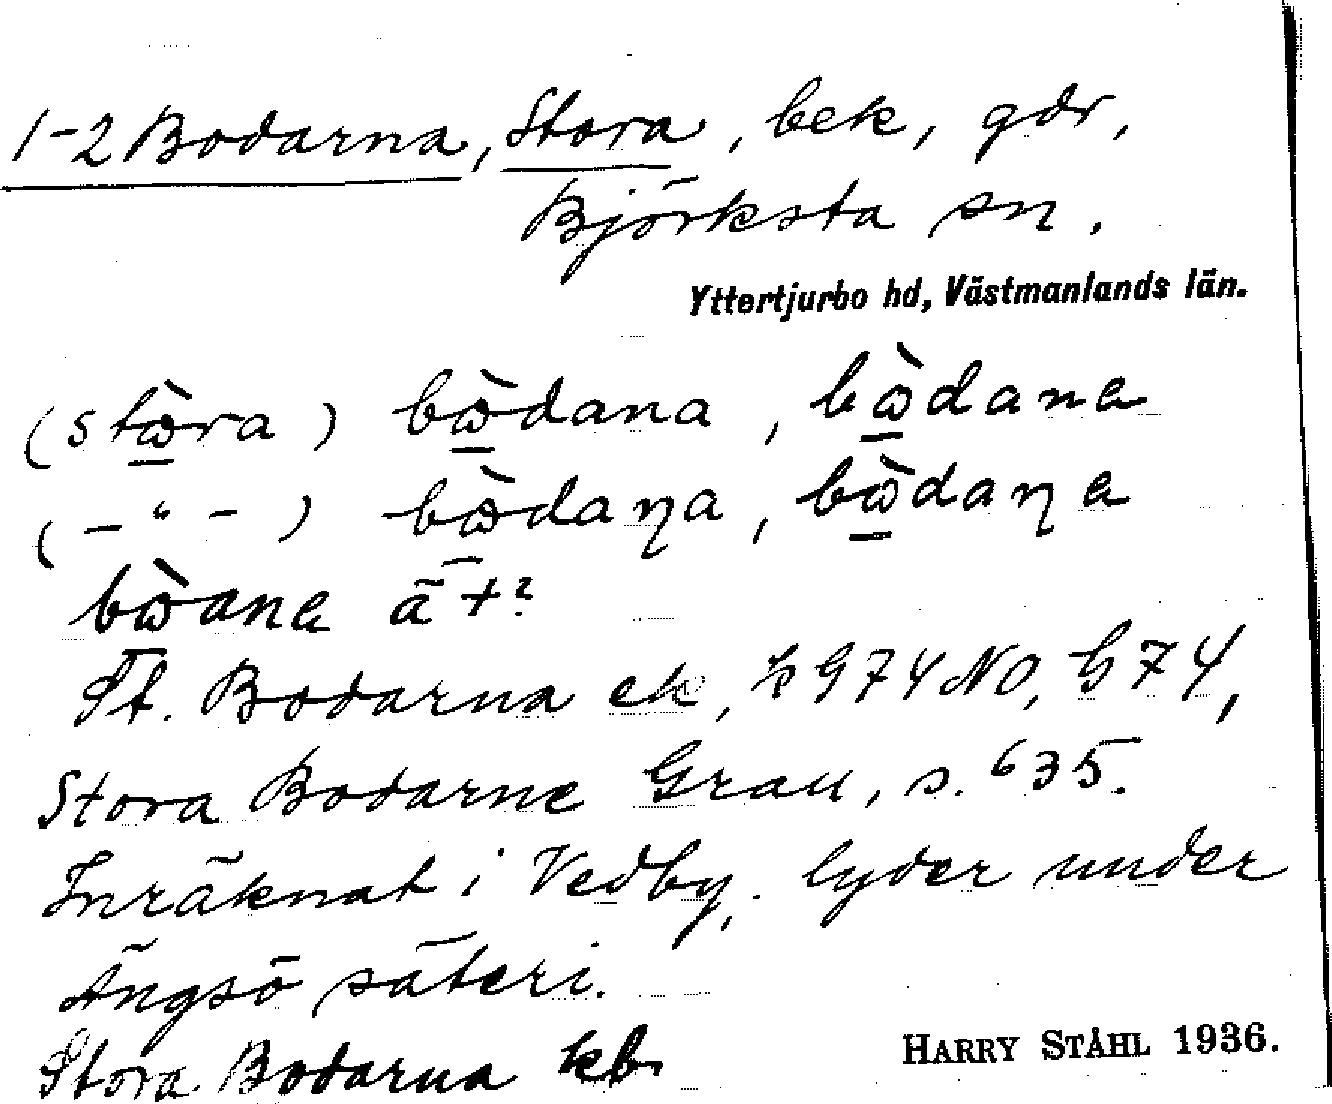 1-2 Bodarna, Stora, bek, gdr,
Björksta sn.
Yttertjurbo hd, Västmanlands län.
(stὼ̲ra) bὼ̲dana, bὼ̲dane
(-"-) bὼ̲daɳa, bὼ̲daɳe
bὼ̲ane ä +?
St. Bodarna ek, h G74 NO, G74,
Stora Bodarne Grau, s. 635.
Inräknat i Vedby, lyder under
Ängsö säteri.
Stora Bodarna kb.
HARRY STÅHL 1936.